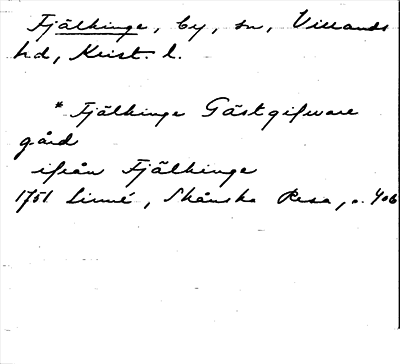 Fjälkinge, by, sn, Villands
hd, Krist. l.
* Fjälkinge Gästgifware
gård
ifrån Fjälkinge
1751 Linné, Skånska Resa, s. 406